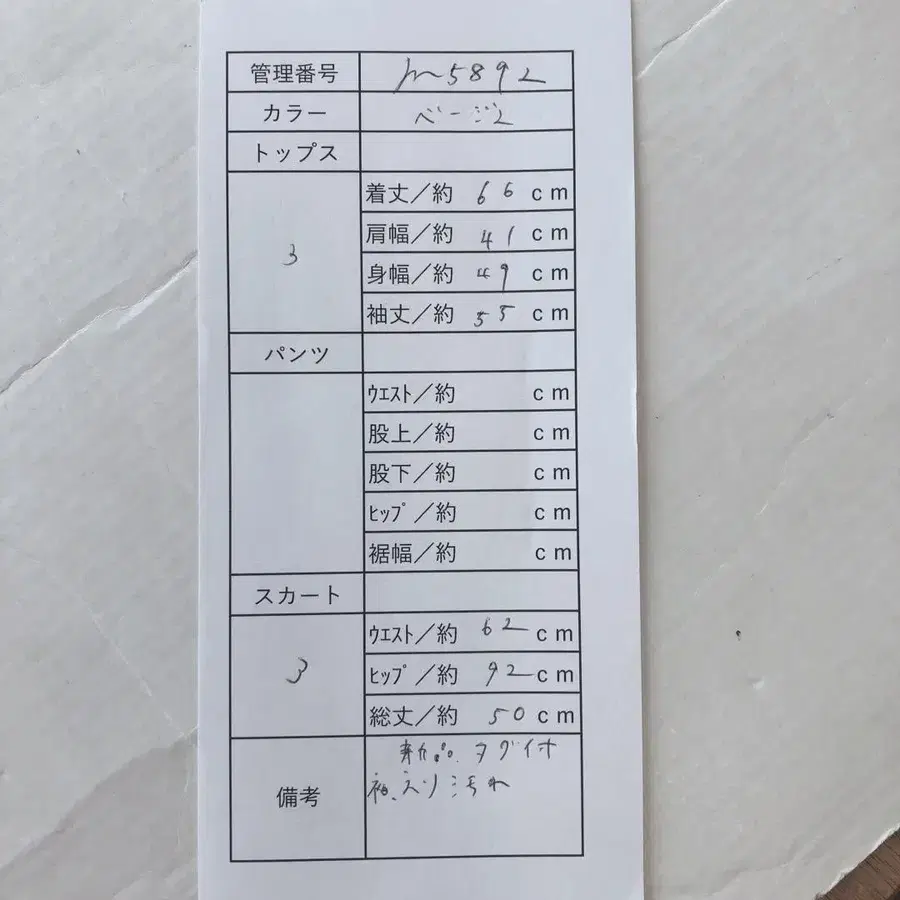 管理番号 m5892
カラー ベージュ
トップス
3
着丈／約 66 cm
肩幅／約 41 cm
身幅／約 49 cm
袖丈／約 55 cm
パンツ
ｳｴｽﾄ／約 cm
股上／約 cm
股下／約 cm
ﾋｯﾌﾟ／約 cm
裾幅／約 cm
スカート
3
ｳｴｽﾄ／約 62 cm
ﾋｯﾌﾟ／約 92 cm
総丈／約 50 cm
備考
新品.タグ付
袖、エリ汚れ